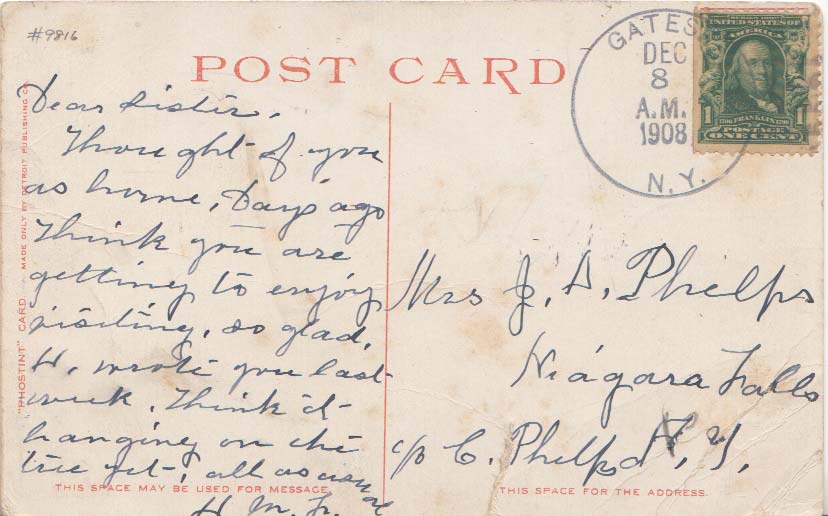 #9816
POST CARD
GATES
DEC
8
A.M.
1908
N.Y.
SERIES 1902
UNITED STATES OF AMERICA
1706 FRANKLIN 1790
POSTAGE
1 ONE CENT 1
"PHOSTINT" CARD MADE ONLY BY DETROIT PUBLISHING CO.
Dear Sister,
Thought of you
as home, days ago
Think you are
getting to enjoy
visiting, so glad,
H, wrote you last
week. Think it
hanging on the
tree yet, all as usual
H. M.
THIS SPACE MAY BE USED FOR MESSAGE
Mrs J. A. Phelps
Niagara Falls
c/o C. Phelps N, Y,
THIS SPACE FOR THE ADDRESS.